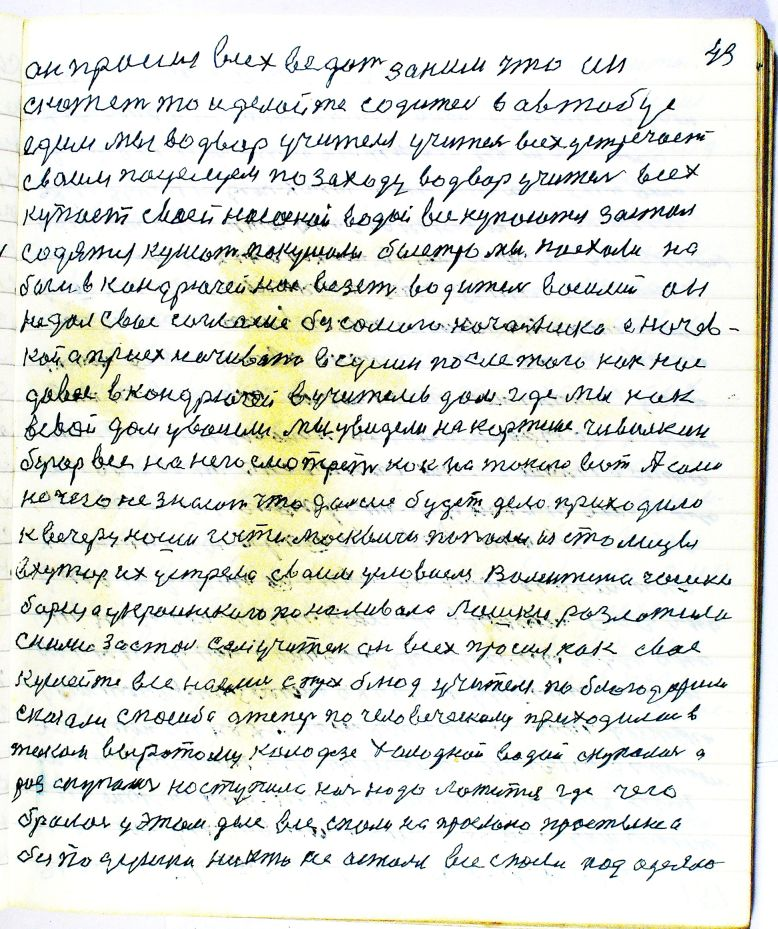 43
он просил всех ведот заним что он
скотет то и делойте содител в автобус
едим мы водвор учителя учител всех устречает
своим поцелуем позаходу водвор учител всех
купает своей насосной водой все купоются застол
содятся кушат покушали быстро мы поехали на
боги в кондрючей нас везет водител восилий он
недол свое соглосие без сомого начольника
кой а приех начивать после того как нас
в кондрючей вучителя дом где мы как
всвой дом увошли мы увидели на картине чивилкин
борар все на него смотреть как на токого вот А сами
нечего не знают что дальше будет дело приходило
к вечеру ноши гости москвичи попали из столицы
вхутор их устрела своим условием Валентина чошки
борща украинского поналивала Лошки разложила
сними застол сел учител он всех просил как свое
кушайте все наели с трех блюд учителя по благодарили
сказали спосиба а тепер по человеческому приходилос в
таком выротому колодзе холодной водой скупался а
роз скупался наступила ноч нада ложится где чего
бралос у этом деле все спали на простынка
без подушки нихто не астался все спали под одеяло